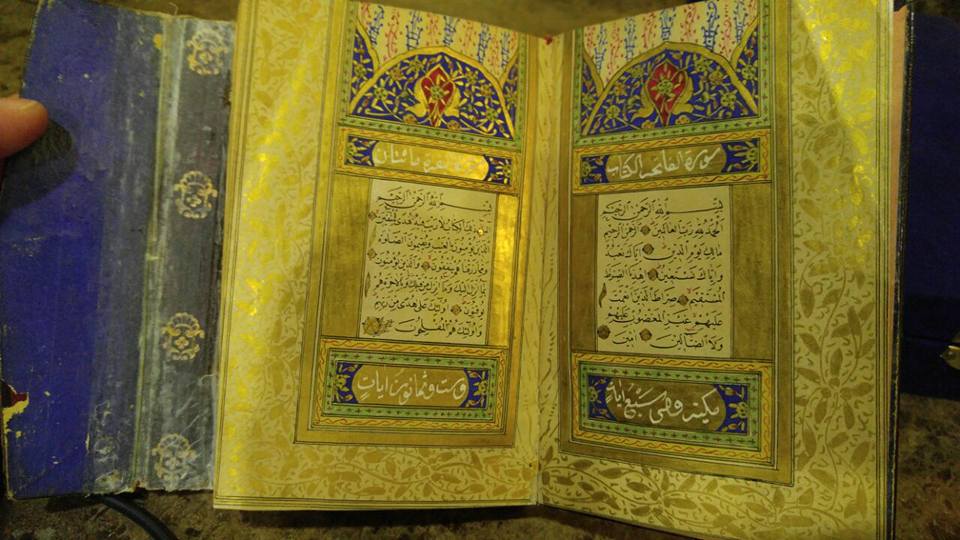 سورة الفاتحة الكتاب
بسم الله الرحمن الرحيم
الحمد لله رب العالمين الرحمن الرحيم
مالك يوم الدين اياك نعبد
واياك نستعين اهدنا الصراط
المستقيم صراط الذين انعمت
عليهم غير المغضوب عليهم
ولا الضالين امين
وهى سبع ايات
سورة البقرة مائتان
بسم الله الرحمن الرحيم
ذلك الكتاب لا ريب فيه هدى للمتقين
الذين يؤمنون بالغيب ويقيمون الصلوة
ومما رزقناهم ينفقون والذين يؤمنون
بما انزل اليك وما انزل من قبلك وبالاخرة هم
يوقنون اولئك على هدى من ربهم
واولئك هم المفلحون
وست وثمانون ايات